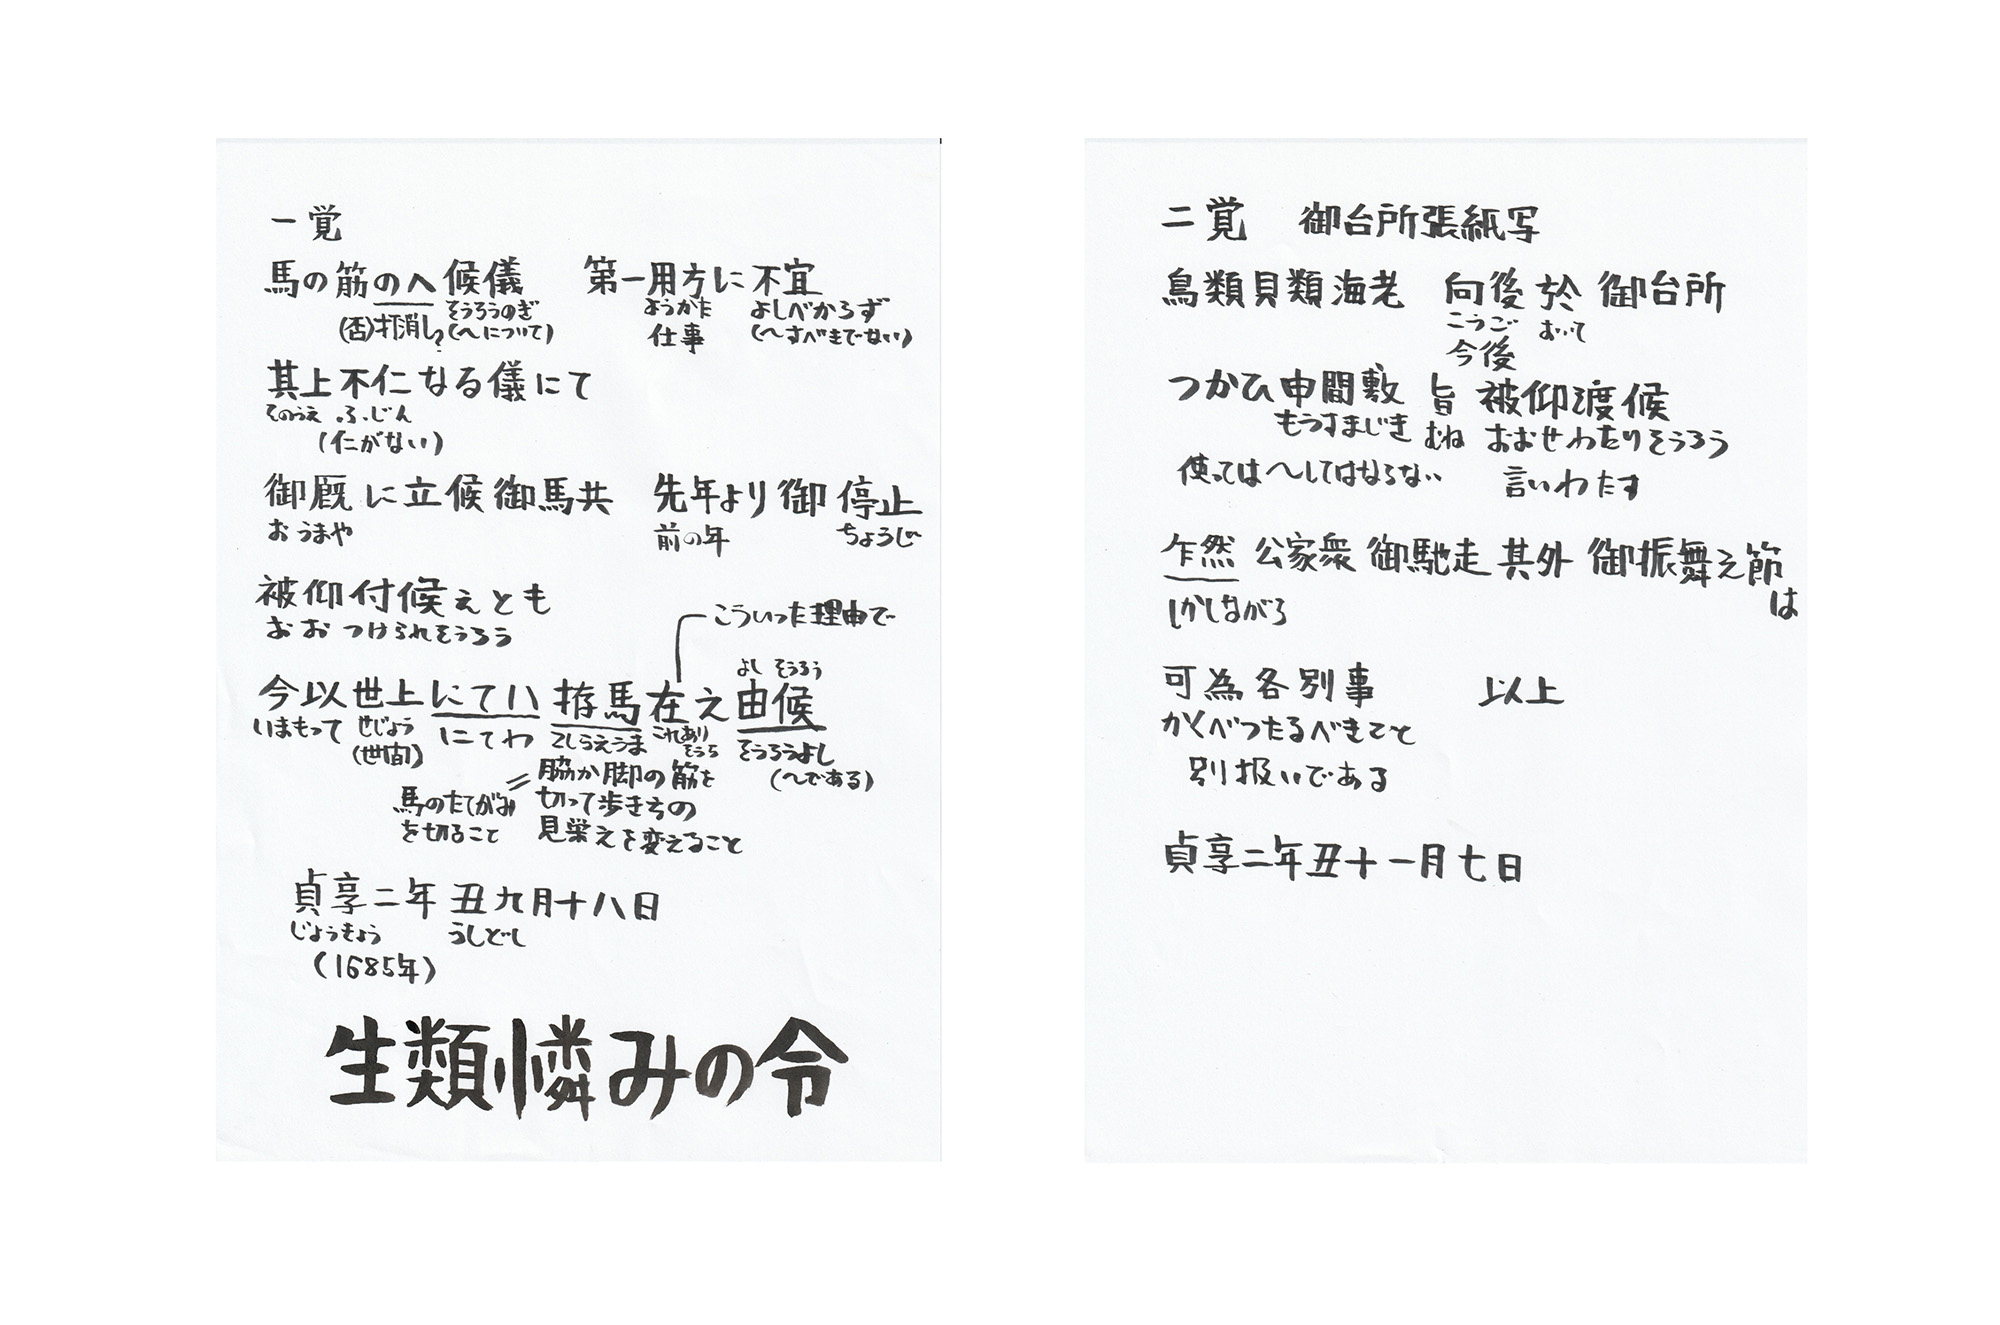 一覚
馬の筋のへ候儀 第一用方に不宜
そうろうのぎ ようかた よしべからず
(否)打消し? (〜について) 仕事 (〜すべきでない)
其上不仁なる儀にて
そのうえ ふじん
(仁がない)
御厩に立候御馬共 先年より御停止
おうまや 前の年 ちょうじ
被仰付候えとも
おお つけられそうろう
こういった理由で
よし そうろう
今以世上にてハ 拵馬在え由候
いまもって せじょう にてわ こしらえうま これあり そうろうよし
そうろう
(世間) 脇か脚の筋を (〜である)
馬のたてがみ = 切って歩きちの
を切ること 見栄えを変えること
貞享二年 丑九月十八日
じょうきょう うしどし
(1685年)
生類憐みの令
二覚 御台所張紙写
鳥類貝類海老 向後於御台所
こうご おいて
今後
つかひ申間敷 旨 被仰渡候
もうすまじき むね おおせわたりそうろう
使っては〜してはならない 言いわたす
乍然 公家衆 御馳走其外 御振舞え節
は
しかしながら
可為各別事 以上
かくべつたるべきこと
別扱いである
貞享二年丑十一月七日